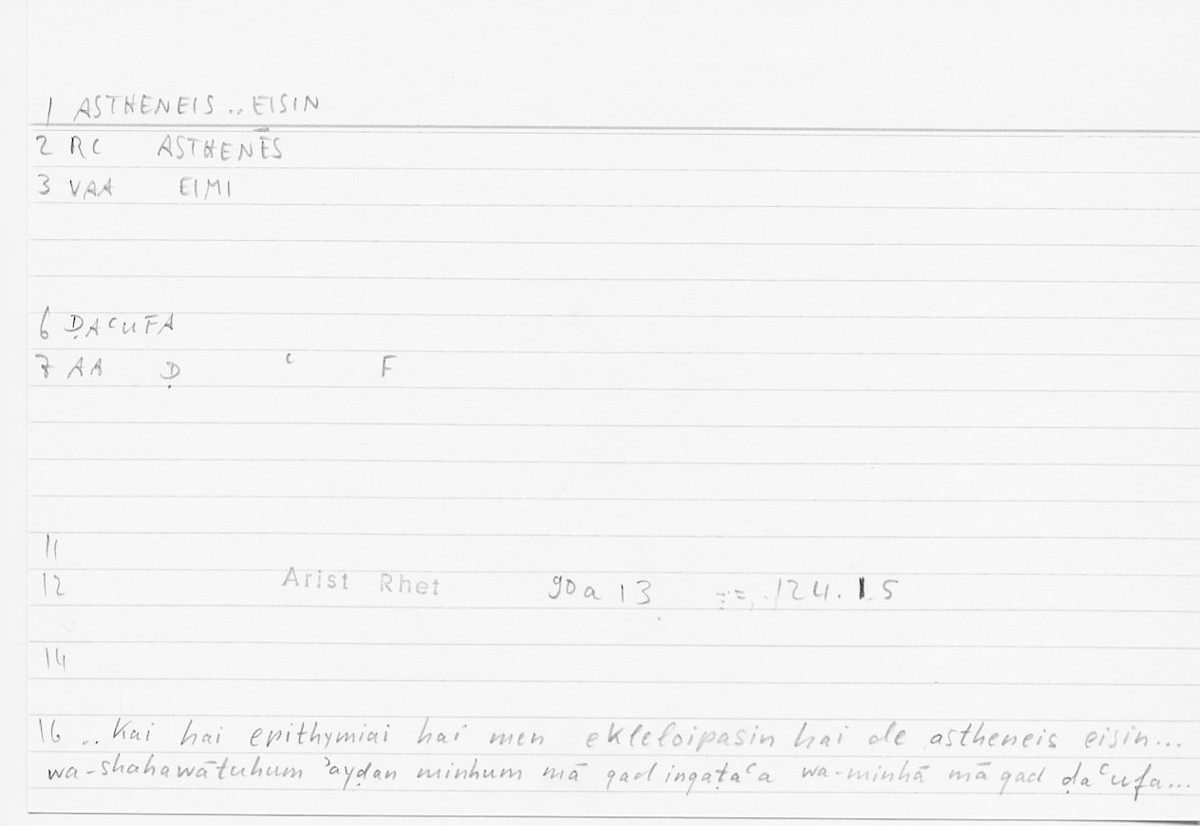 1 ASTHENEIS .. EISIN
2 RC ASTHENĒS
3 VAA EIMI
6 ḌAʿUFA
7 AA Ḍ ʿ F
11
12 Arist Rhet 90a 13 = 124.15
14
16 .. Kai hai epithymiai hai men ekleloipasin hai de astheneis eisin...
wa-shahawātuhum ʾayḍan minhum mā qad inqaṭaʿa wa-minhā mā qad ḍaʿufa...